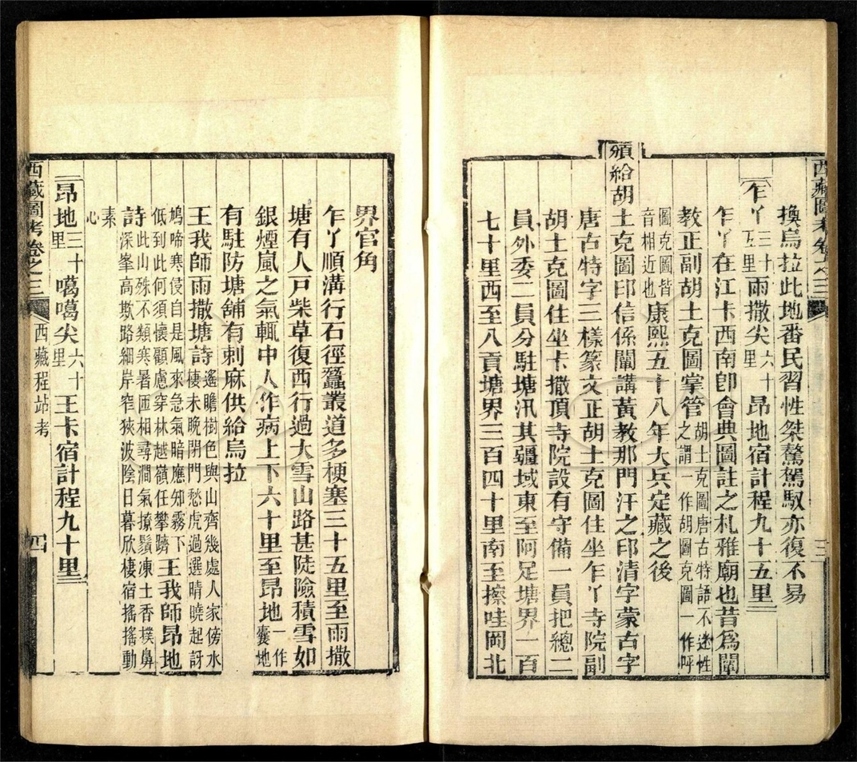 西藏圖考卷之三 三
換烏拉此地番民習性桀驁駕馭亦復不易
乍丫三十五里雨撒尖六十里昂地宿計程九十五里
乍丫在江卡西南卽會典圖註之札雅廟也昔爲闡
教正副胡土克圖掌管胡土克圖唐古特語不迷性之謂一作胡圖克圖一作呼
圖克圖皆音相近也康熙五十八年大兵定藏之後
頒給胡土克圖印信係闡講黃教那門汗之印清字蒙古字
唐古特字三樣篆文正胡土克圖住坐乍丫寺院副
胡土克圖住坐卡撒頂寺院設有守備一員把總二
員外委二員分駐塘汛其疆域東至阿足塘界一百
七十里西至八貢塘界三百四十里南至擦哇岡北
界官角
乍丫順溝行石徑蠶叢道多梗塞三十五里至雨撒
塘有人戸柴草復西行過大雪山路甚陡險積雪如
銀煙嵐之氣輒中人作病上下六十里至昂地一作囊地
有駐防塘舖有剌麻供給烏拉
王我師雨撒塘詩遙瞻樹色與山齊幾處人家傍水棲未晚閉門愁虎過選晴曉起訝
鳩啼寒侵自是風來急氣暗應知霧下低到此何須懷顧慮穿林越嶺任攀躋王我師昂地
詩此山殊不類寒暑匝相尋澗氣撩鬚凍土香樸鼻深峯高欺路細岸窄狹波陰日暮欣棲宿搖搖動
素心
昂地三十里噶噶尖六十里王卡宿計程九十里
西藏圖考卷之三 西藏程站考 四